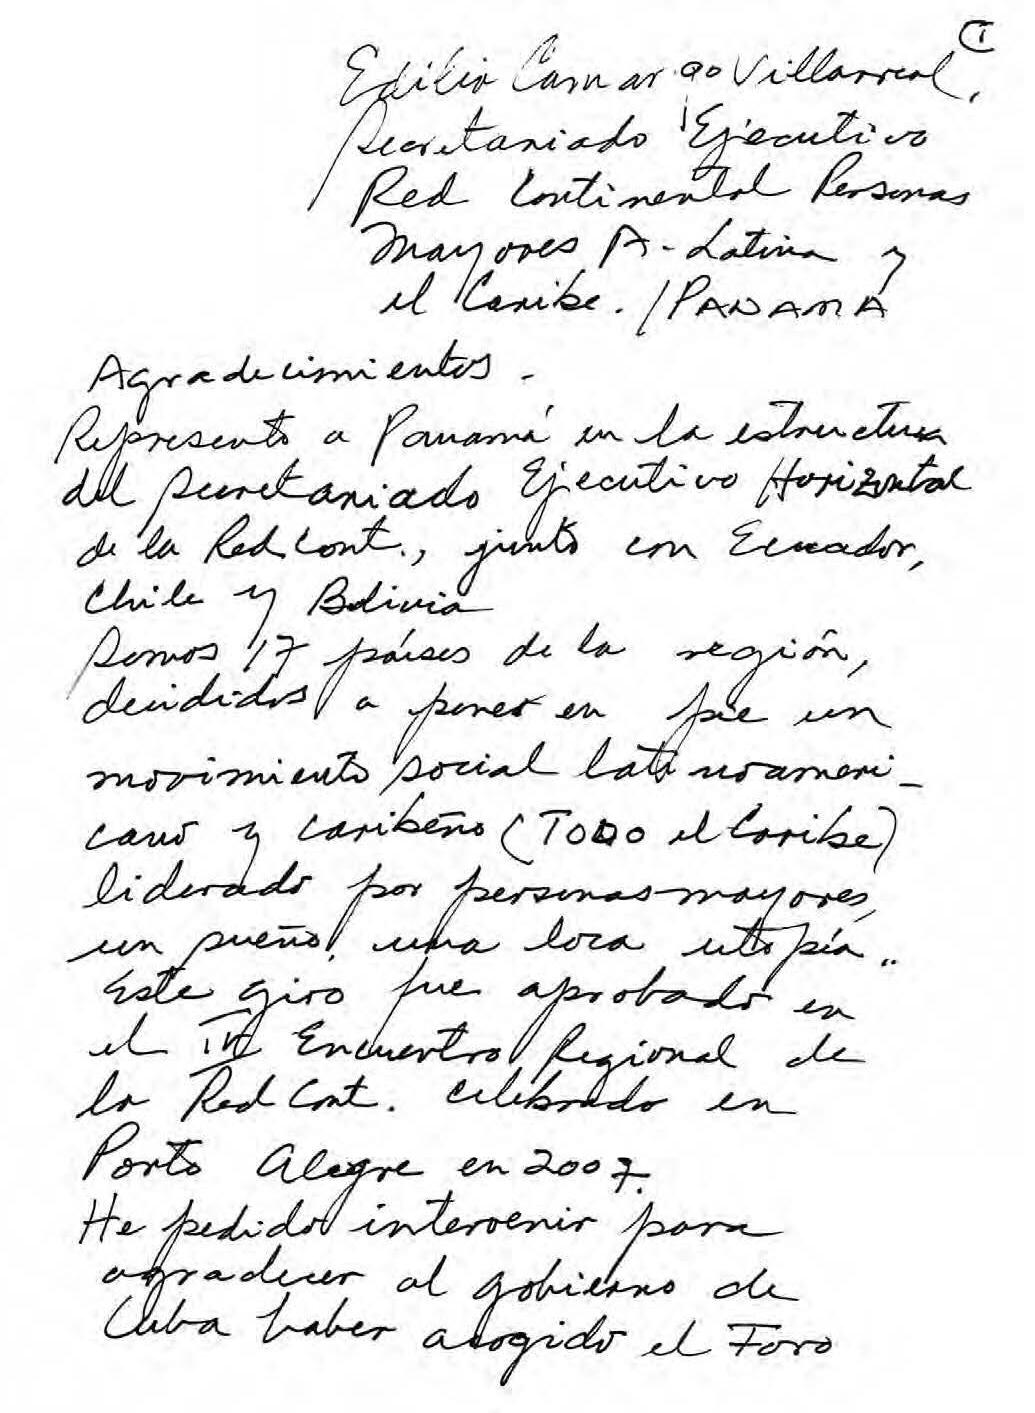 1
Edilio Camargo Villarreal,
Secretariado Ejecutivo
Red Continental Personas
Mayores A. Latina y
el Caribe. / PANAMÁ
Agradecimientos.
Represento a Panamá en la estructura
del Secretariado Ejecutivo Horizontal
de la Red Cont., junto con Ecuador,
Chile y Bolivia
Somos 17 países de la región,
decididos a poner en pie un
movimiento social latinoameri-
cano y caribeño (TODO el Caribe)
liderado por personas mayores,
un sueño, una loca utopía..
Este giro fue aprobado en
el IV Encuentro Regional de
la Red Cont. celebrado en
Porto Alegre en 2007.
He pedido intervenir para
agradecer al gobierno de
Cuba haber acogido el Foro